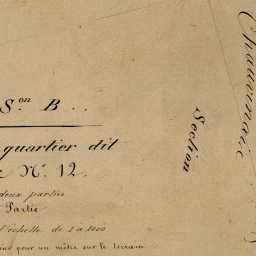 S.on B..
quartier dit
N.o 12.
deux parties
Partie
l'échelle de 1 à
pour un mètre sur le terrain
Section